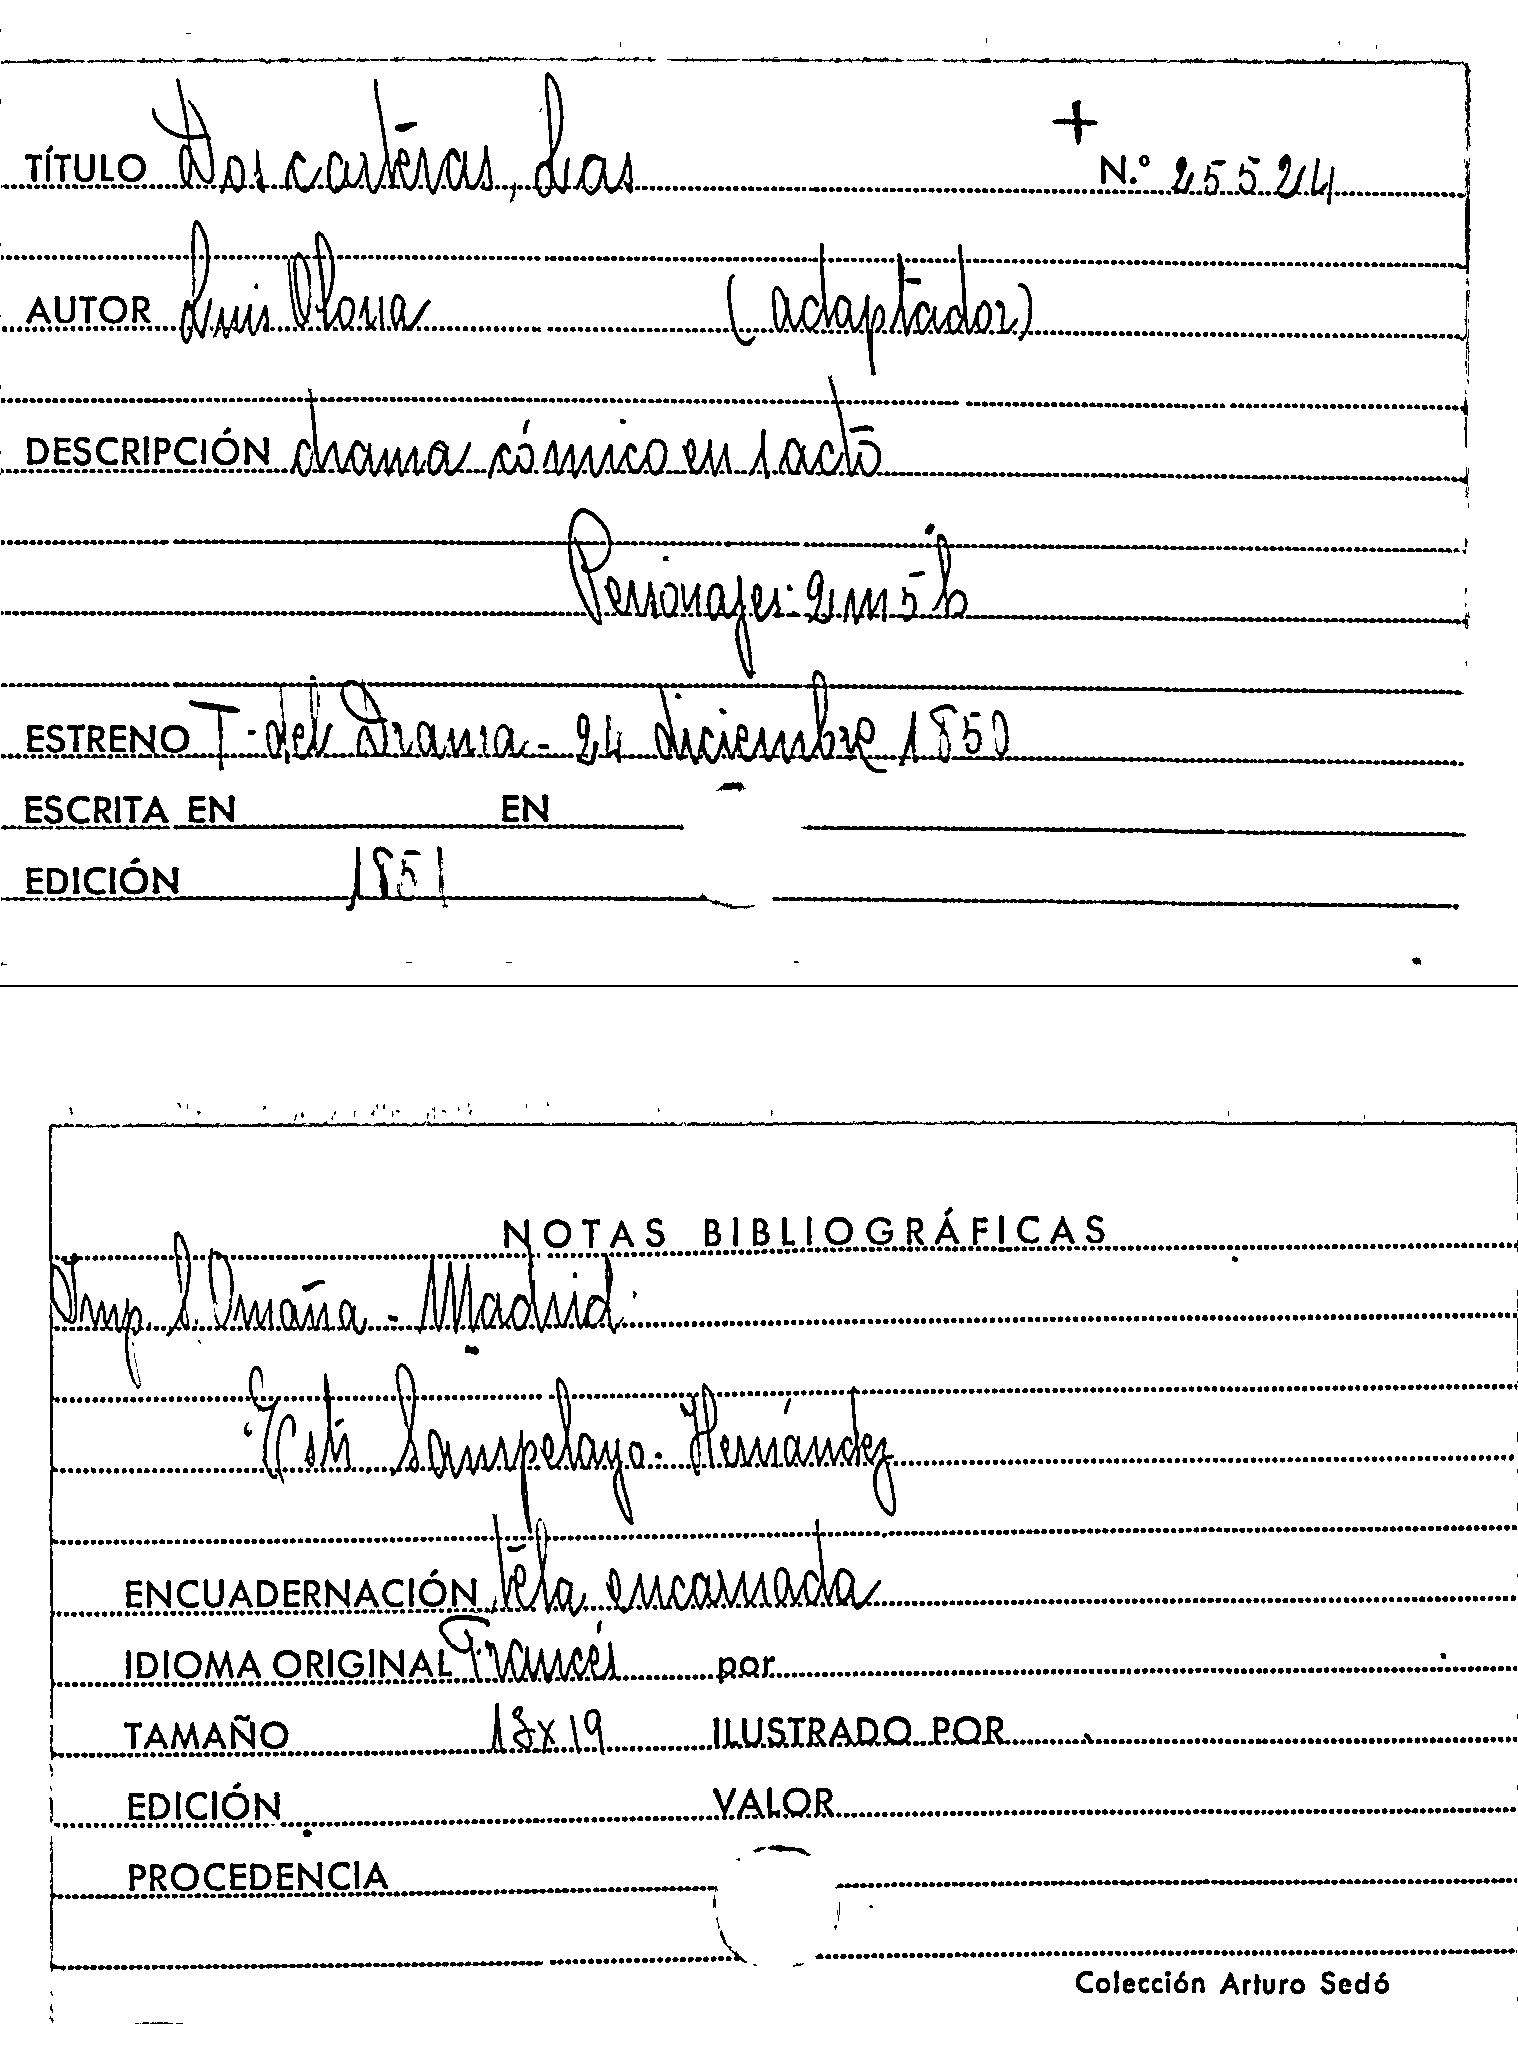 +
TÍTULO Dos carteras, Las N.º 25524
AUTOR Luis Olona (adaptador)
DESCRIPCIÓN drama cómico en 1 acto
Personajes: 2 m 5 h
ESTRENO T. del Drama - 24 diciembre 1850
ESCRITA EN EN
EDICIÓN 1851
NOTAS BIBLIOGRÁFICAS
Imp. S. Omaña - Madrid.
Sampelayo - Hernández
ENCUADERNACIÓN tela encarnada
IDIOMA ORIGINAL Francés por
TAMAÑO 13x19 ILUSTRADO POR
EDICIÓN VALOR
PROCEDENCIA
Colección Arturo Sedó